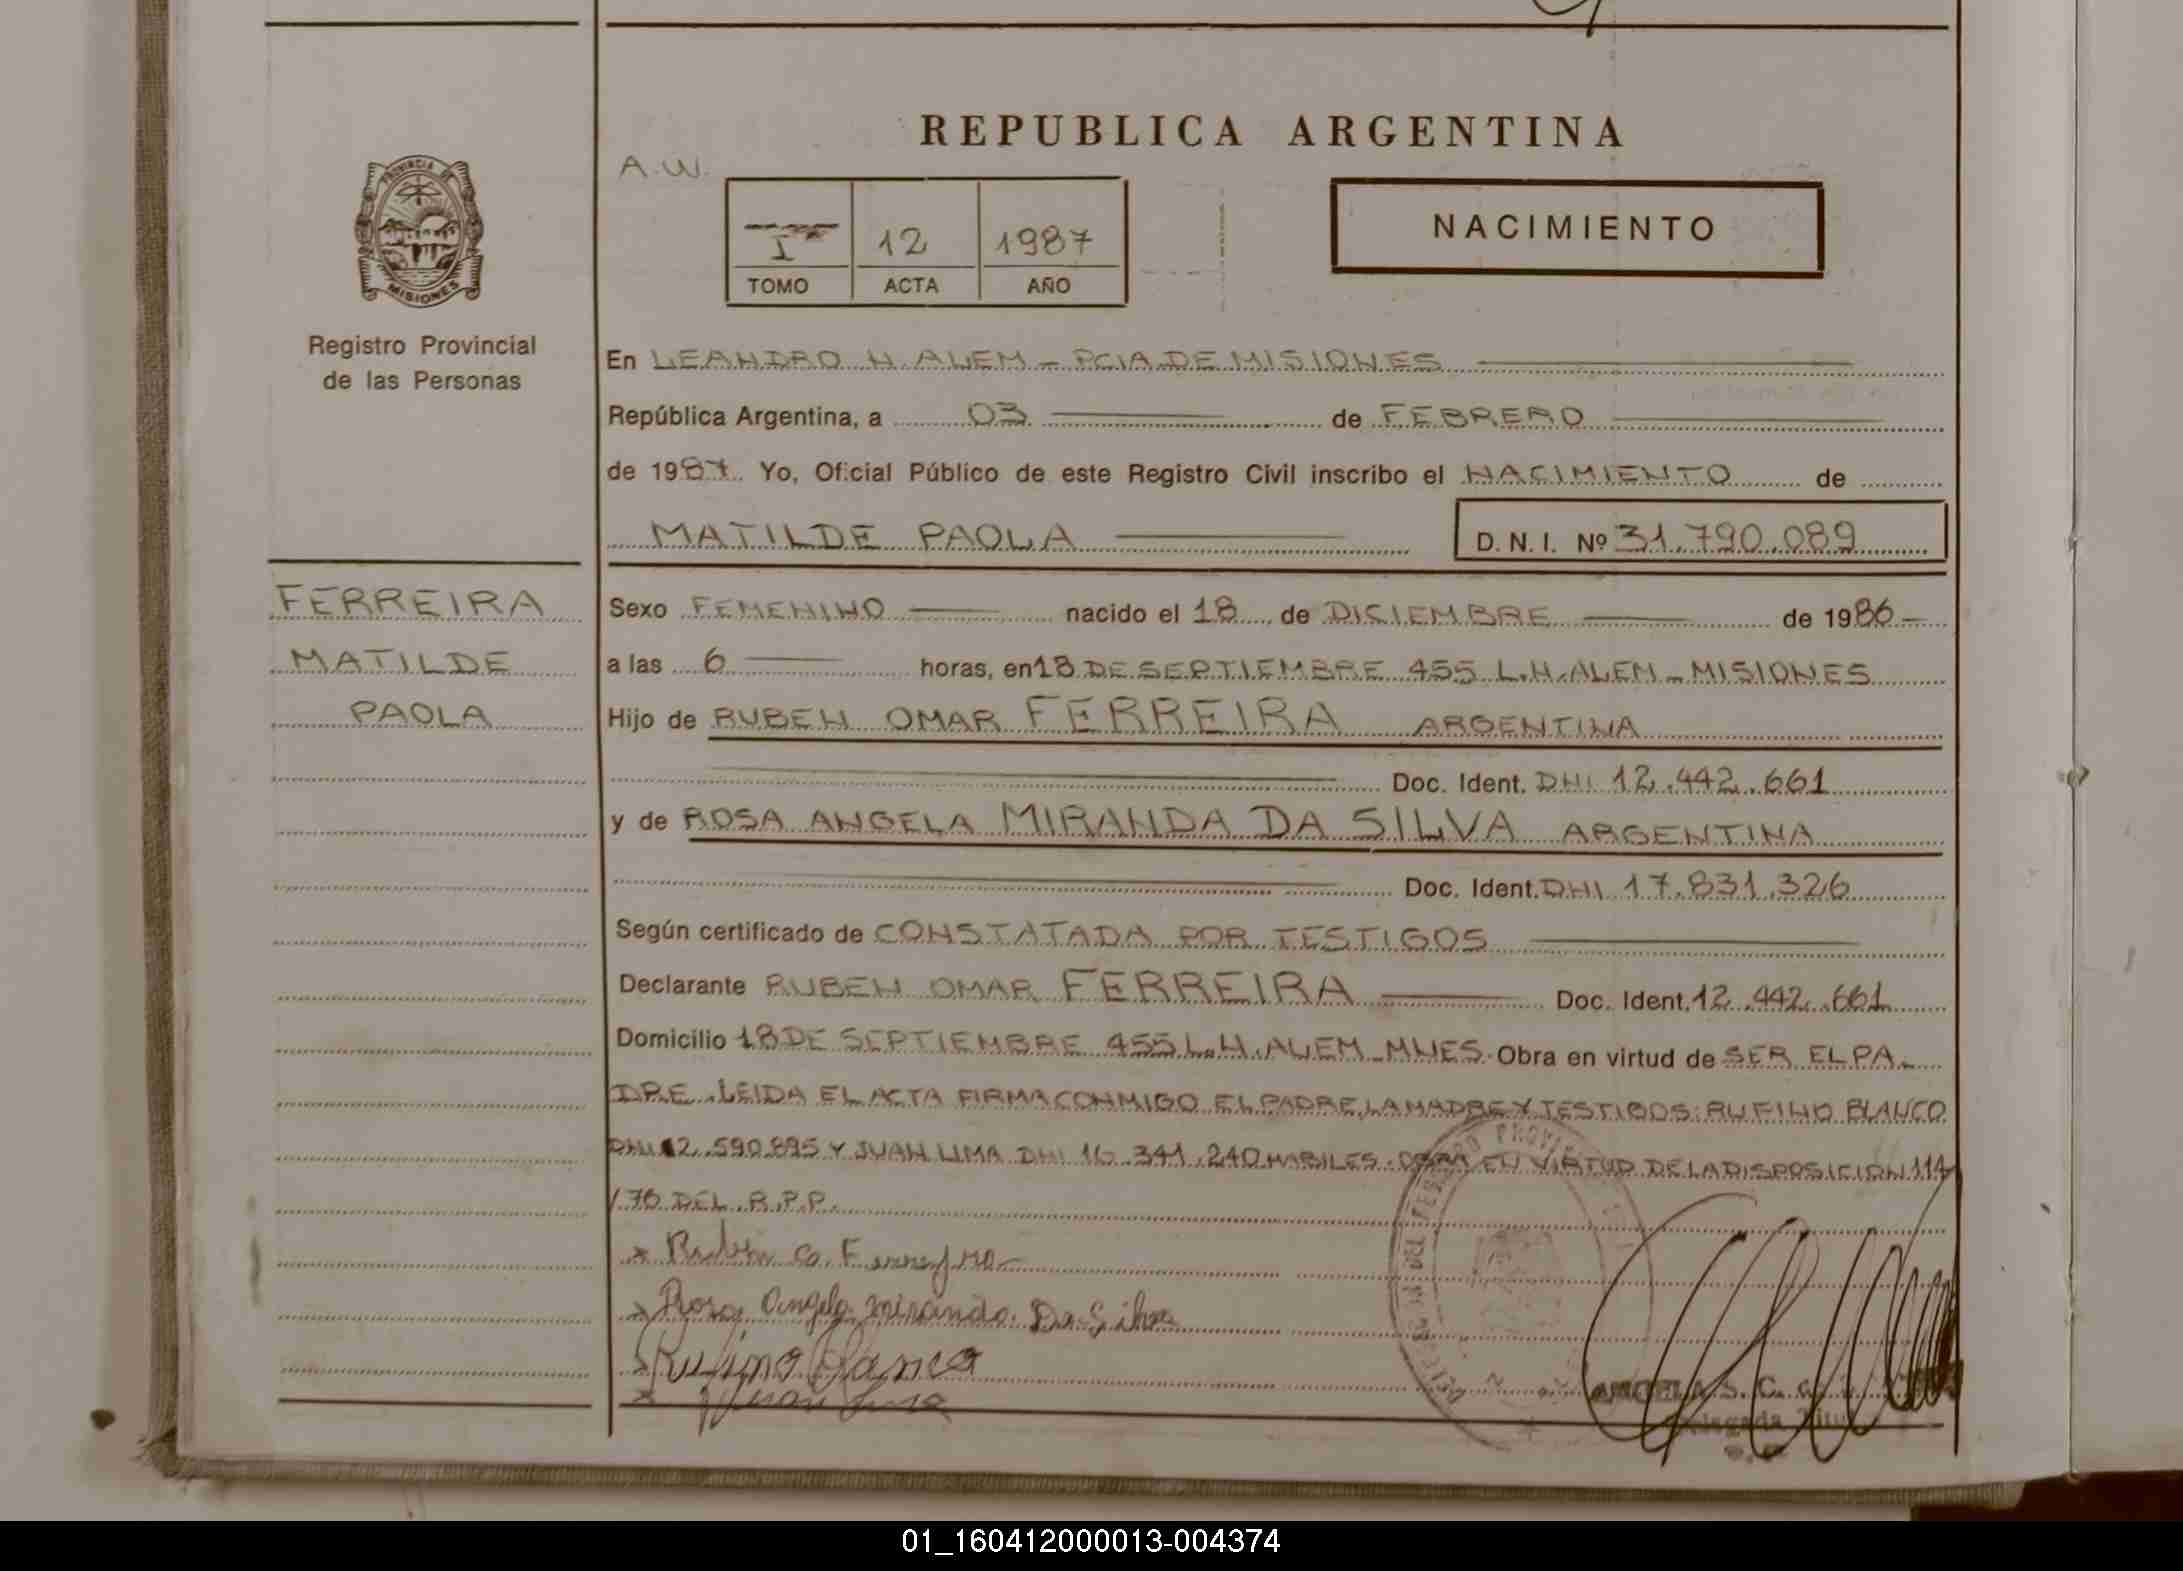 REPUBLICA ARGENTINA
A.W.
PROVINCIA DE
MISIONES
I 12 1987
TOMO ACTA AÑO
NACIMIENTO
Registro Provincial
de las Personas
En LEANDRO N. ALEM - PCIA DE MISIONES
República Argentina, a 03 de FEBRERO
de 1987. Yo, Oficial Público de este Registro Civil inscribo el NACIMIENTO de
MATILDE PAOLA D. N. I. Nº 31.790.089
FERREIRA
MATILDE
PAOLA
Sexo FEMENINO nacido el 18 de DICIEMBRE de 1986
a las 6 horas, en 18 DE SEPTIEMBRE 455 L.N. ALEM - MISIONES
Hijo de RUBEN OMAR FERREIRA ARGENTINA
Doc. Ident. DNI 12.442.661
y de ROSA ANGELA MIRANDA DA SILVA ARGENTINA
Doc. Ident. DNI 17.831.326
Según certificado de CONSTATADA POR TESTIGOS
Declarante RUBEN OMAR FERREIRA Doc. Ident. 12.442.661
Domicilio 18 DE SEPTIEMBRE 455 L.N. ALEM - MNES. Obra en virtud de SER EL PA-
DRE. LEIDA EL ACTA FIRMA CONMIGO EL PADRE, LA MADRE Y TESTIGOS: RUFINO BLANCO
DNI 12.590.895 Y JUAN LIMA DNI 16.341.240 HABILES. OBRA EN VIRTUD DE LA DISPOSICION 114
/76 DEL R.P.P.
Ruben O. Ferreyra
Rosa Angela Miranda Da Silva
Rufino Blanco
Juan Lima
01_160412000013-004374